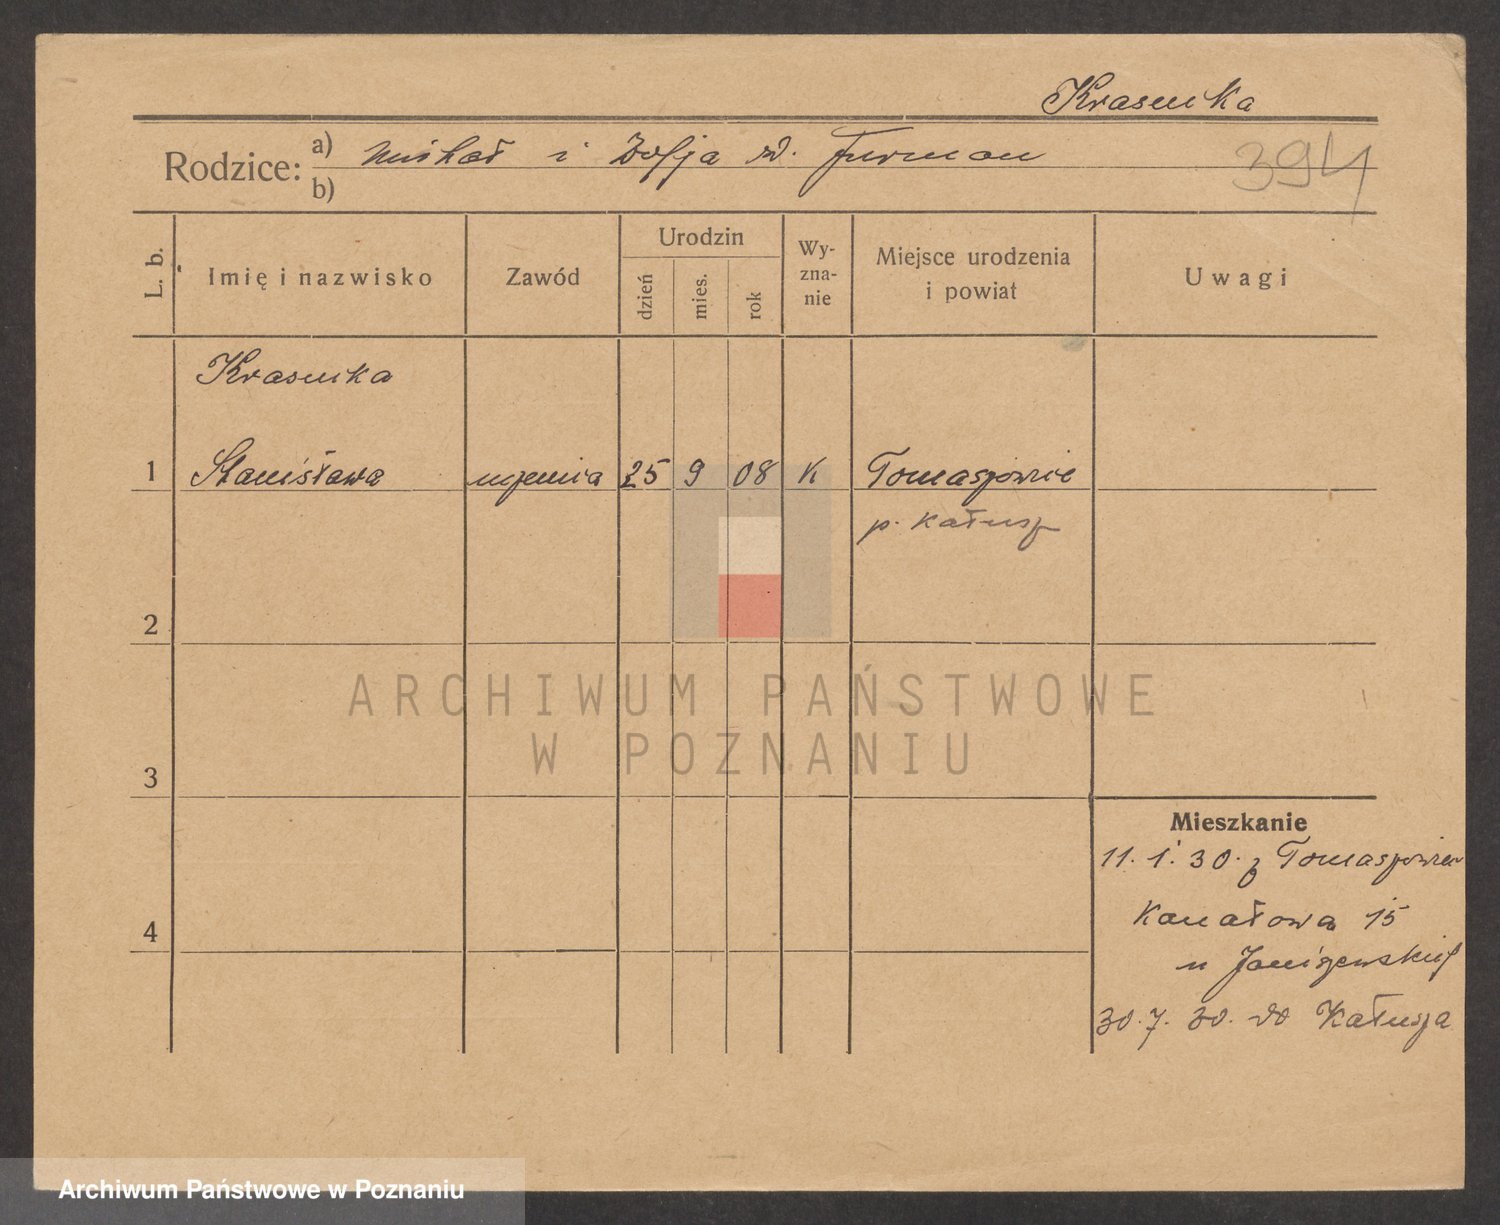 Krasucka
Rodzice: a) Michał i Zofja zd. Furman
b)
394
L. b.
Imię i nazwisko
Zawód
Urodzin
dzień
mies.
rok
Wy-
zna-
nie
Miejsce urodzenia
i powiat
Uwagi
Krasucka
1 Stanisława uczenica 25 9 08 K Tomaszowie
p. Kałusz
2
3
4
Mieszkanie
11. 1. 30. z Tomaszowiec
Kanałowa 15
u Janiszewskiej
30. 7. 30. do Kałusza
ARCHIWUM PAŃSTWOWE
W POZNANIU
Archiwum Państwowe w Poznaniu